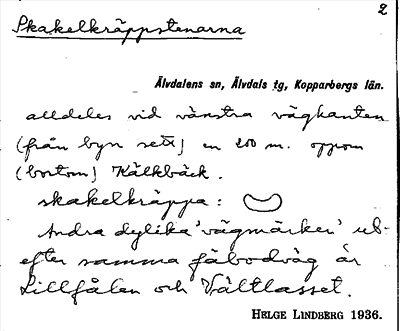 2
Skakelkräppstenarna
Älvdalens sn, Älvdals tg, Kopparbergs län.
alldeles vid vänstra vägkanten
(från byn sett) en 200 m. oppom
(bortom) Kälkbäck.
skakelkräppa:
Andra dylika 'vägmärken' ut-
efter samma fäbodväg är
Lillfålen och Vältlasset.
HELGE LINDBERG 1936.